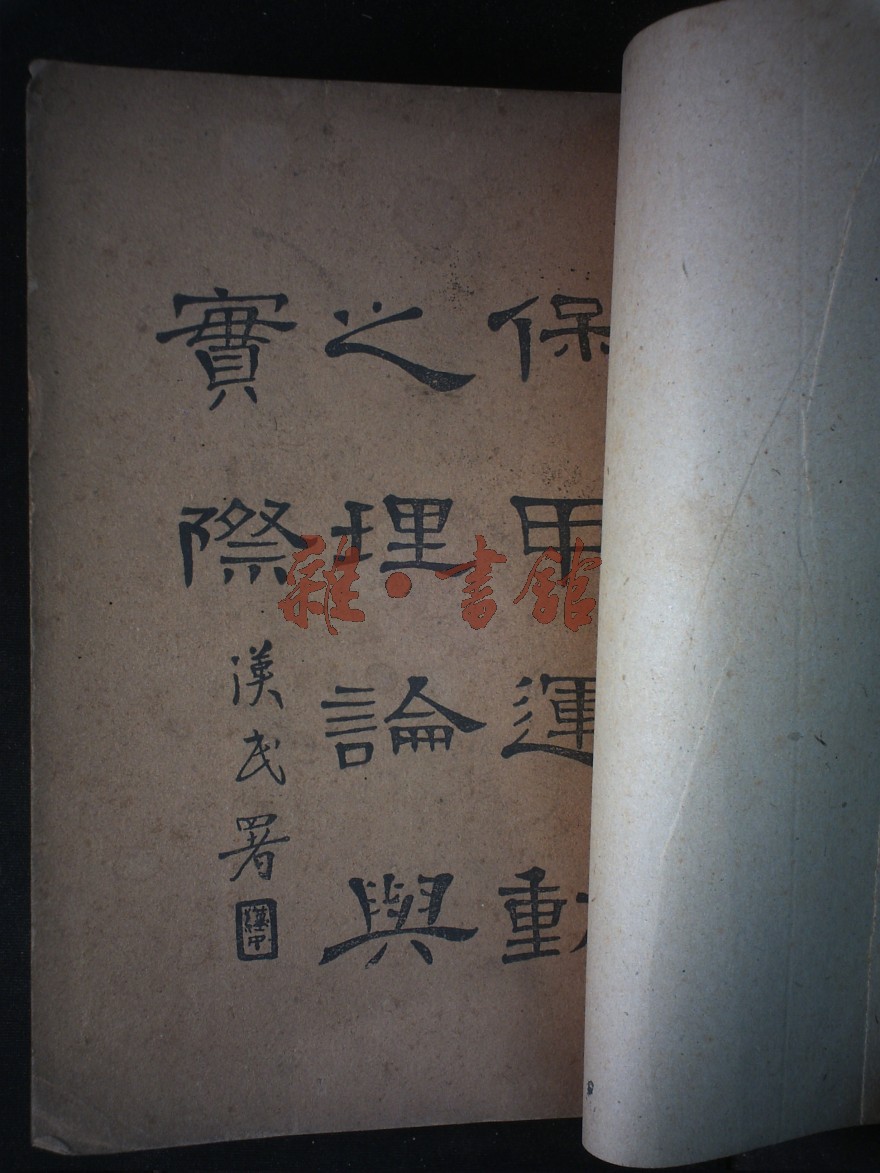 保甲運動
之理論與
實際
漢民署
雜·書館